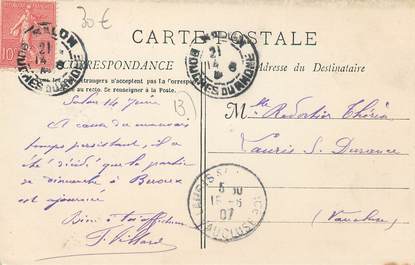 30€
CARTE POSTALE
SALON
BOUCHES DU RHONE
21
14
CORRESPONDANCE
Adresse du Destinataire
étrangers n'acceptent pas la Correspondance
au recto. Se renseigner à la Poste.
Salon 14 Juin
13
A cause du mauvais
temps persistant, il a
été décidé que la partie
de dimanche à
est ajournée
Bien à toi affection
F. Villard
Mlle
Lauris S. Durance
(Vaucluse)
LAURIS
5 30
15 -6
07
VAUCLUSE
10